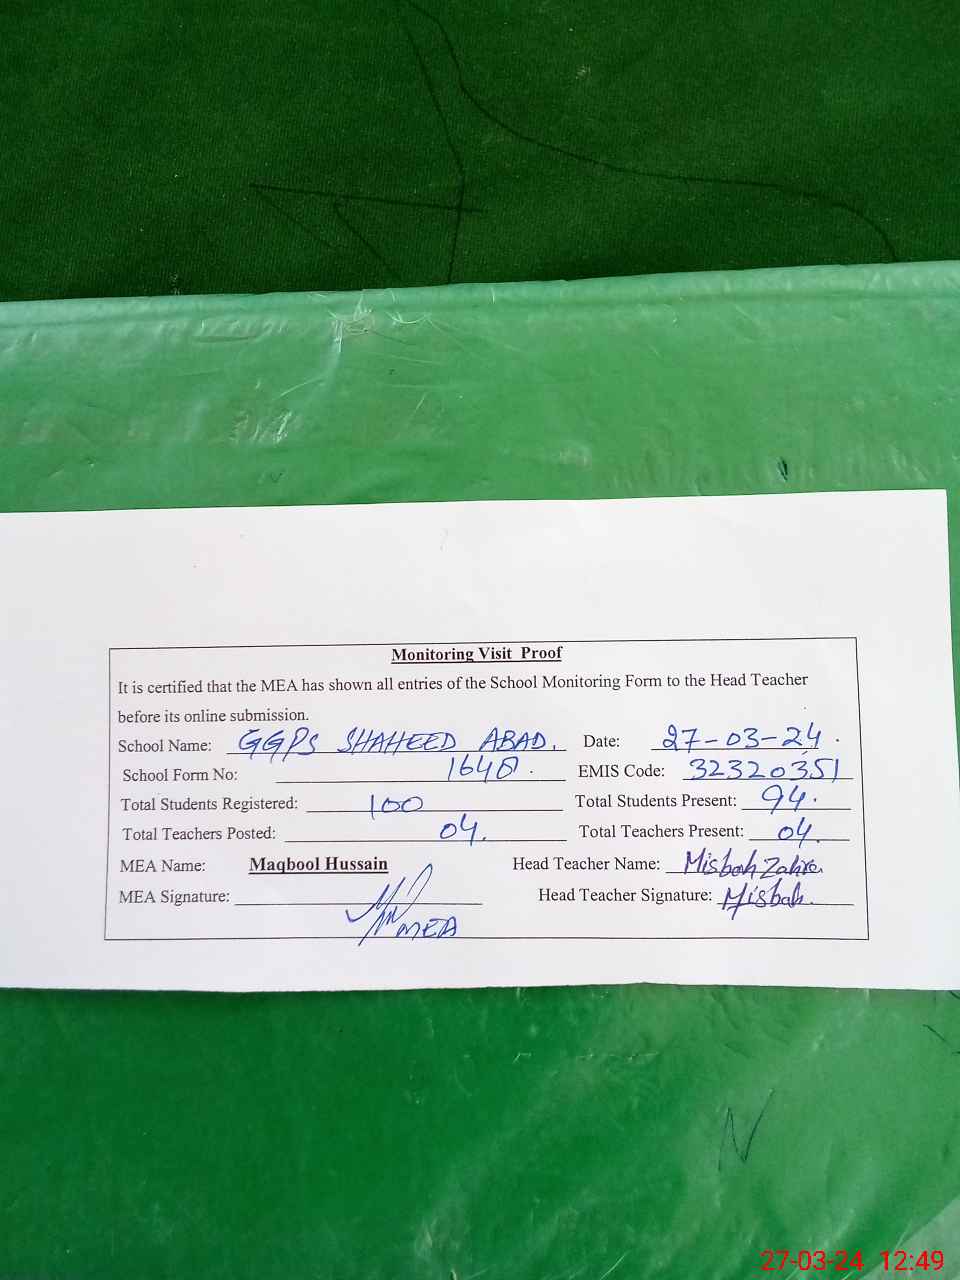 Monitoring Visit Proof
It is certified that the MEA has shown all entries of the School Monitoring Form to the Head Teacher
before its online submission.
School Name: GGPS SHAHEED ABAD. Date: 27-03-24.
School Form No: 1640. EMIS Code: 32320351
Total Students Registered: 100 Total Students Present: 94.
Total Teachers Posted: 04. Total Teachers Present: 04.
MEA Name: Maqbool Hussain Head Teacher Name: Misbah Zahra
MEA Signature: MEA Head Teacher Signature: Misbah.
N
27-03-24 12:49